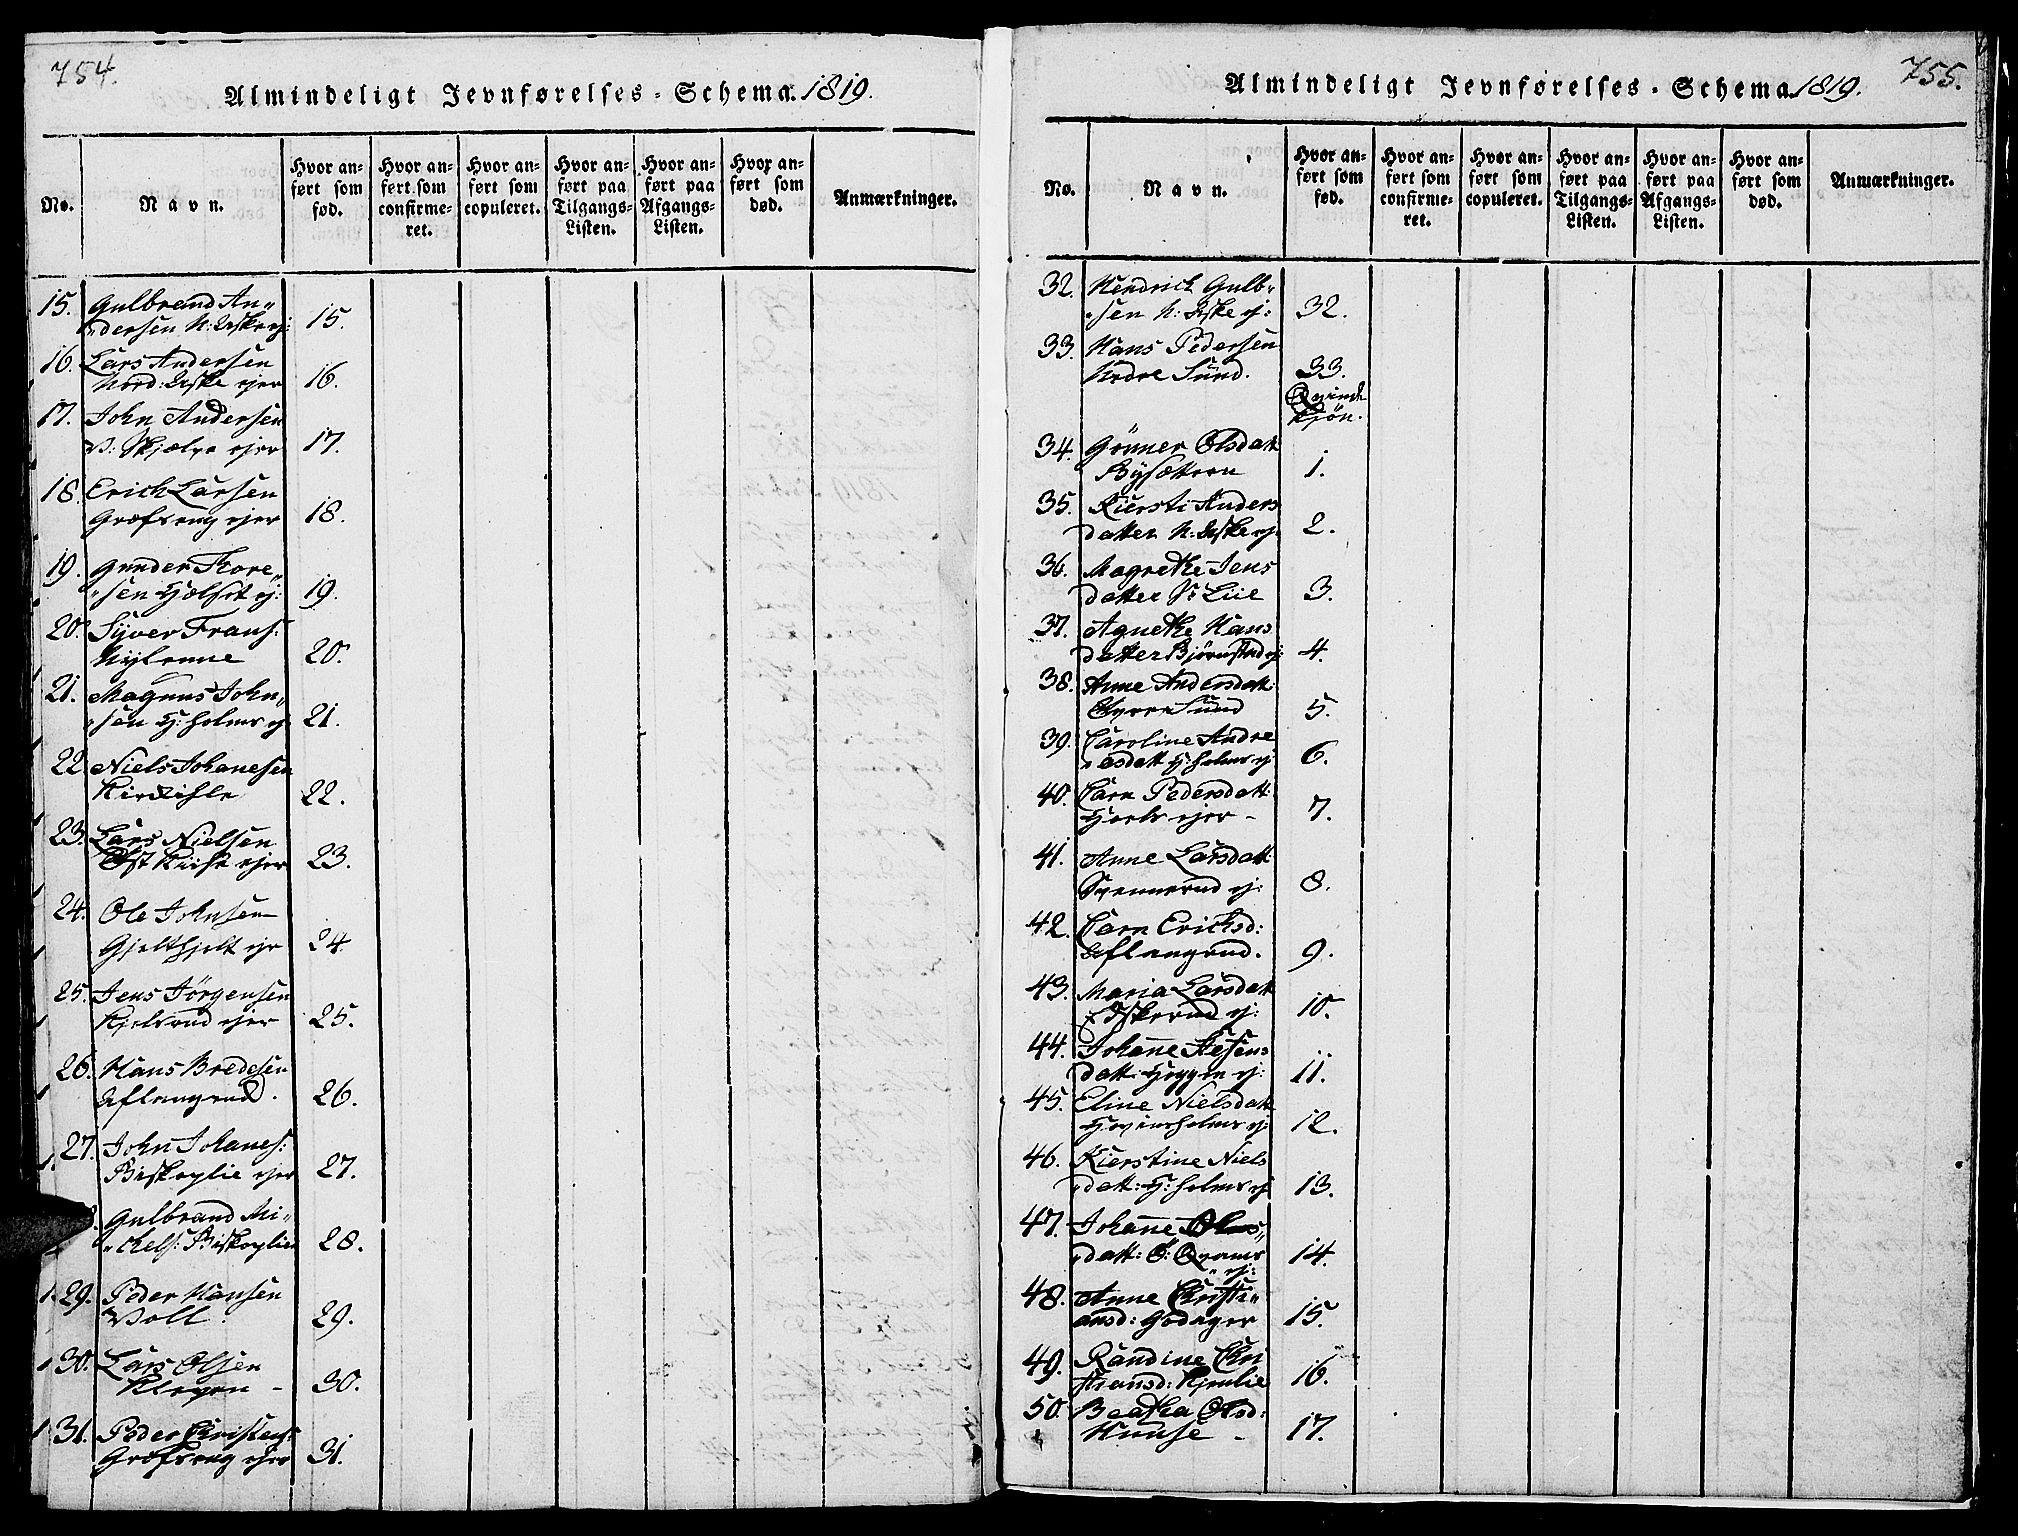 754.
Almindeligt Jevnførelses-Schema. 1819.
No.
Navn.
Hvor anført som fød.
Hvor anført som confirmeret.
Hvor anført som copuleret.
Hvor anført paa Tilgangs-Listen.
Hvor anført paa Afgangs-Listen.
Hvor anført som død.
Anmærkninger.
15. Gulbrand An„
„dersen N: Aske ej: 15.
16. Lars Andersen
Nord: Aske ejer 16.
17. John Andersen
V: Skjælve ejer 17.
18. Erich Larsen
Græfseng ejer 18.
19. Gunder Thore„
„sen Hjelset ej: 19.
20. Syver Frans:
Nylenne 20.
21. Magnus John„
„sen H: holms ej. 21.
22. Niels Johanesen
22.
23. Lars Nielsen
Øst Kiise ejer 23.
24. Ole Johnsen
ejr 24.
25. Jens Jørgensen
Kjelsrud ejer 25.
26. Hans Bredesen
Aflangrud. 26.
27. John Johanes:
Biskoplie ejer 27.
Gulbrand Mi„
„chels: Biskoplie 28.
29. Peder Hansen
Voll. 29.
30. Lars Olsen
Kleven - 30.
31. Peder Christens:
Græfseng ejer 31.
755.
Almindeligt Jevnførelses-Schema 1819.
No.
Navn.
Hvor anført som fød.
Hvor anført som confirmeret.
Hvor anført som copuleret.
Hvor anført paa Tilgangs-Listen.
Hvor anført paa Afgangs-Listen.
Hvor anført som død.
Anmærkninger.
32. Hendrich Gulb„
„sen N: Aske ej: 32.
33. Hans Pedersen
Nedre Sund. 33.
Qvinde
kjön.
34. Gönner Olsdatt
Bysætteren 1.
35. Kiersti Anders
datter N: Aske ej. 2.
36. Magrethe Jens
datter Lie 3.
37. Agnethe Hans
datter Bjørnstad ej: 4.
38. Anne Andersdatt:
Øvre Sund 5.
39. Caroline Andre
„asdatt H: holms ej 6.
40. Carn Pedersdatt:
Hoels ejer - 7.
41. Anne Larsdatt
Svennerud ej: 8.
42. Carn Ericksd:
Aflangrud. 9.
43. Maria Larsdatt
ej: 10.
44. Johanne
datt: ej: 11.
45. Eline Nielsdatt
Hovinsholms ej: 12.
46. Kierstine Niels
„datt: H: holms ej 13.
47. Johanne Olens„
„datt: Ö: Qvams 14.
„ej:
48. Anne Christi„
ansd: Godager 15.
49. Randine Chri
stiansd: Kjenlie 16.
50. Beatha Olsd:
Hunse - 17.